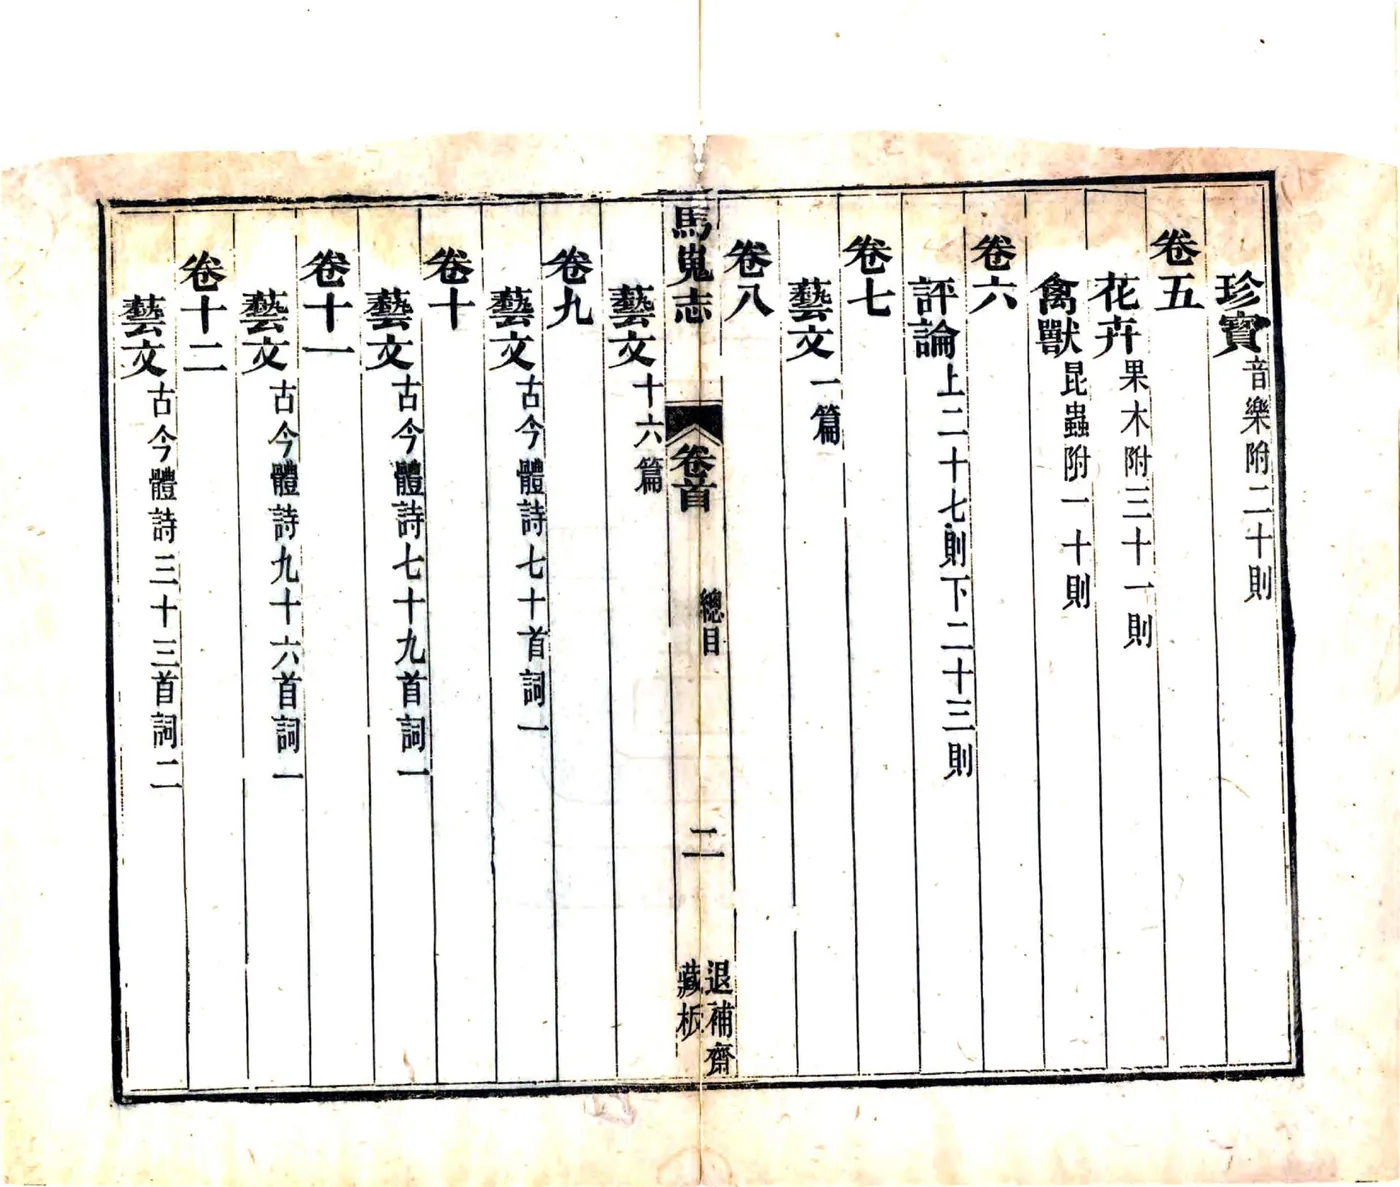 珍寶音樂附二十則
卷五
花卉果木附三十一則
禽獸昆蟲附一十則
卷六
評論上二十七則下二十三則
卷七
藝文一篇
卷八
馬嵬志 卷首 總目 二 退補齋藏板
藝文十六篇
卷九
藝文古今體詩七十首詞一
卷十
藝文古今體詩七十九首詞一
卷十一
藝文古今體詩九十六首詞一
卷十二
藝文古今體詩三十三首詞二